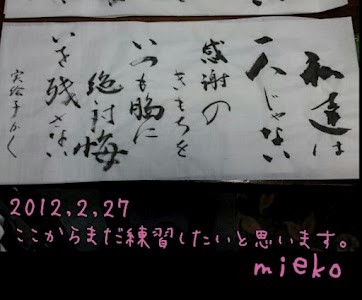 私達は
一人じゃない
感謝の
きもちを
いつも胸に
絶対悔
いを残さない
実絵子かく
2012,2,27
ここからまだ練習したいと思います。
mieko